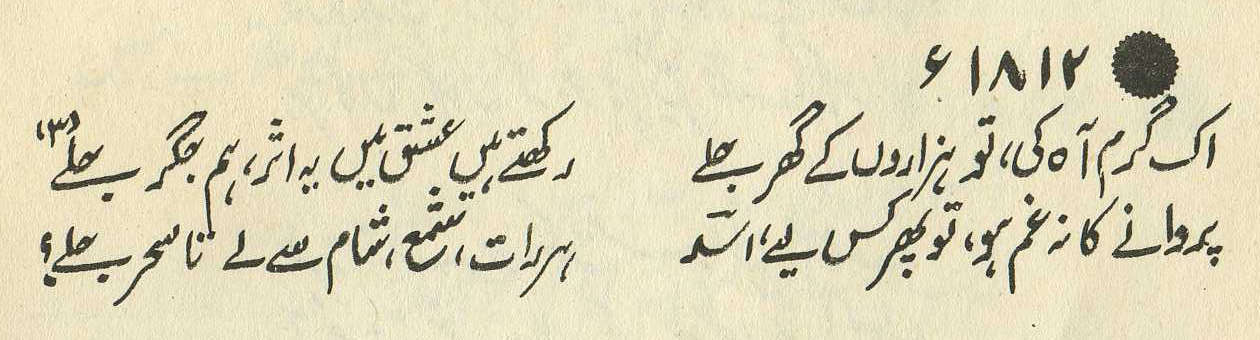 ۱۸۱۲ء
اک گرم آہ کی، تو ہزاروں کے گھر جلے رکھتے ہیں عشق میں یہ اثر، ہم جگر جلے (۳)
پروانے کا نہ غم ہو، تو پھر کس لیے، اسدؔ ہر رات، شمع، شام سے لے تا سحر جلے؟